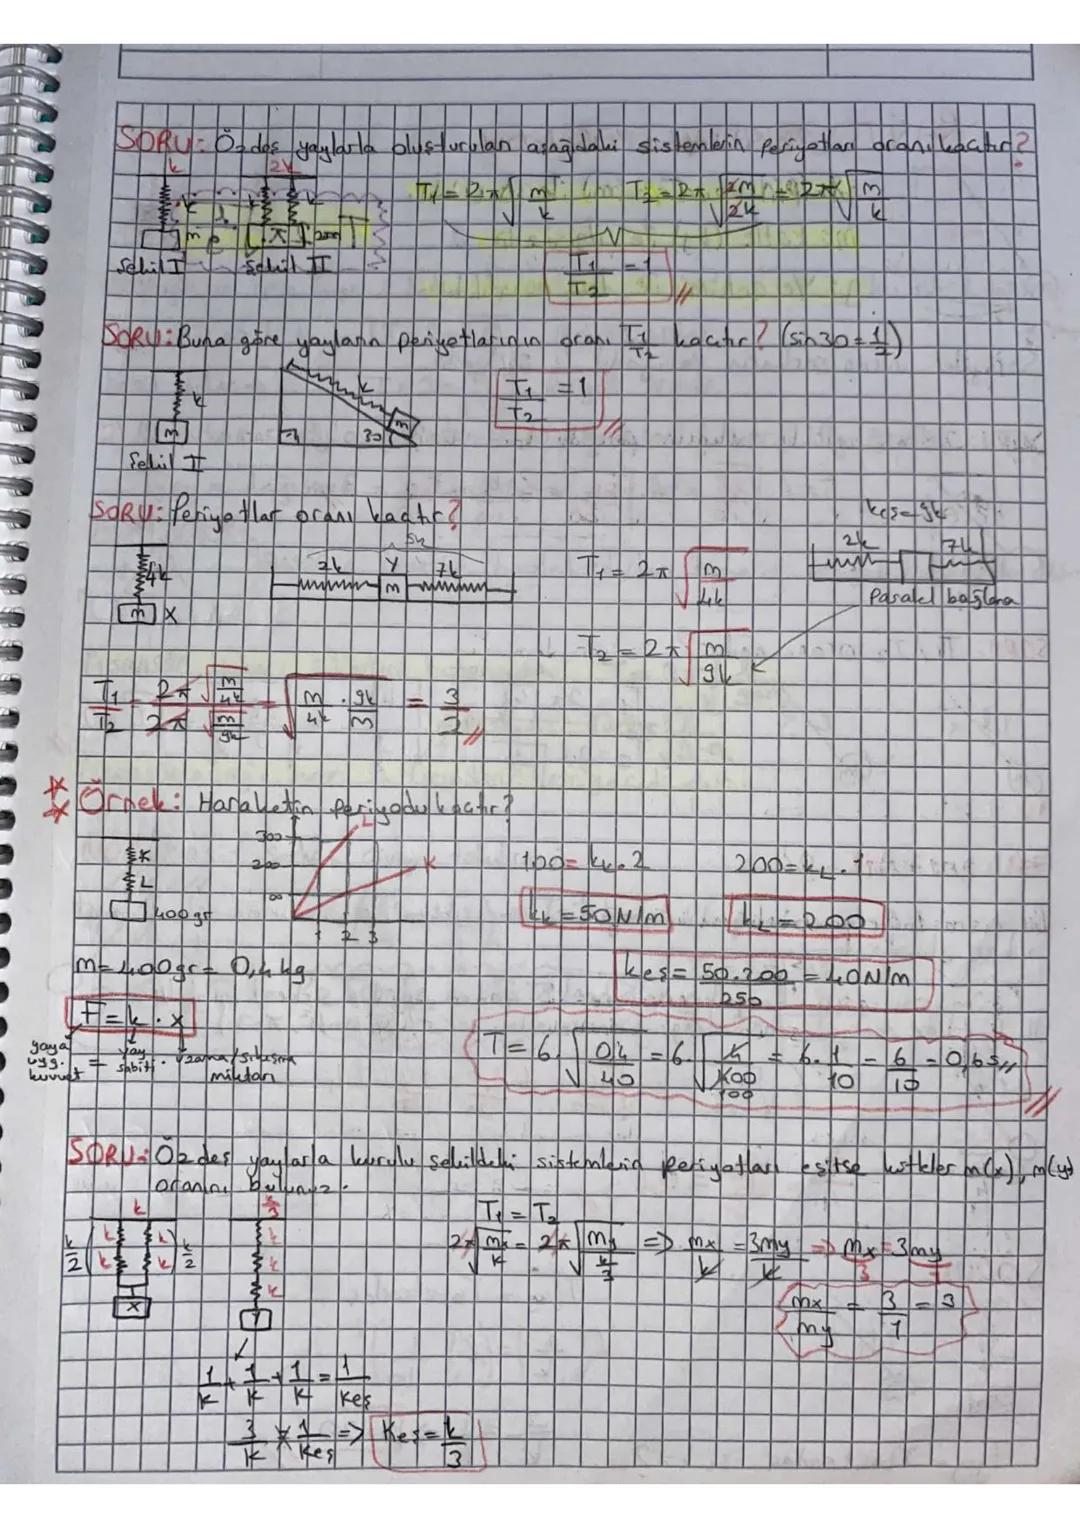 SORU: Özdeş yaylarla oluşturulan aşağıdaki sistemlerin periyotları oranı kaçtır?
k 2k
k k k
m 2m
T₁ = 2π√(m/k) T₂ = 2π√(2m/2k) = 2π√(m/k)
Şekil I Şekil II
T₁/T₂ = 1
SORU: Buna göre yayların periyotlarının oranı T₁/T₂ kaçtır? (sin30 = 1/2)
k k
m m 30
T₁/T₂ = 1
Şekil I
SORU: Periyotlar oranı kaçtır?
4k
m X
2k Y 7k
m
T₁ = 2π√(m/4k)
keş = 9k
2k 7k
Paralel bağlama
T₂ = 2π√(m/9k)
T₁/T₂ = 2π√(m/4k) / 2π√(m/9k) = √(m/4k · 9k/m) = 3/2
Örnek: Haraketin periyodu kaçtır?
K
L
400 gr
300 L
200 K
1 2 3
100 = kk.2 200 = kL.1
kk = 50 N/m kL = 200
m = 400gr = 0,4 kg
keş = 50.200/250 = 40 N/m
F = k . x
yaya uyg. kuvvet = yay sabiti . uzama/sıkışma miktarı
T = 6√(0,4/40) = 6.√(4/400) = 6.1/10 = 6/10 = 0,6 s
100
SORU: Özdeş yaylarla kurulu şekildeki sistemlerin periyotları eşitse kütleler m(x), m(y)
oranını bulunuz.
k k/3
k/2 k k k k k/2
k k k
X Y
T₁ = T₂
2π√(mx/k) = 2π√(my/(k/3)) => mx/k = 3my/k => mx = 3my
mx/my = 3/1 = 3
1/k + 1/k + 1/k = 1/keş
3/k = 1/keş => Keş = k/3